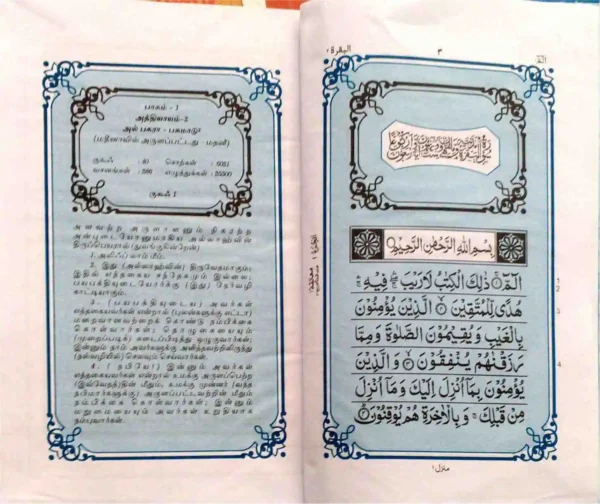 பாகம் - 1
அத்தியாயம்-2
அல் பகரா - பசுமாடு
(மதீனாவில் அருளப்பட்டது மதனீ)
ருகூஃ : 40 சொற்கள் :
வசனங்கள் : 286 எழுத்துக்கள் :
ருகூஃ 1
அளவற்ற அருளாளனும் நிகரற்ற
அன்புடையோனுமாகிய அல்லாஹ்வின்
திருப்பெயரால் (துவங்குகின்றேன்)
1. அலிஃப் லாம் மீம்.
2. இது (அல்லாஹ்வின்) திருவேதமாகும்;
இதில் எத்தகைய சந்தேகமும் இல்லை;
பயபக்தியுடையோர்க்கு (இது) நேர்வழி
காட்டியாகும்.
3. (பயபக்தியுடைய) அவர்கள்
எத்தகையவர்கள் என்றால் (புலன்களுக்கு எட்டா)
மறைவானவற்றைக் கொண்டு நம்பிக்கை
கொள்வார்கள்; தொழுகையையும்
(முறைப்படிக்) கடைப்பிடித்து ஒழுகுவார்கள்;
இன்னும் நாம் அவர்களுக்கு அளித்தவற்றிலிருந்து
(நல்வழியில்) செலவும் செய்வார்கள்.
4. (நபியே!) இன்னும் அவர்கள்
எத்தகையவர்கள் என்றால் உமக்கு அருளப்பெற்ற
(இவ்வேதத்)தின் மீதும், உமக்கு முன்னர் (வந்த
நபிமார்களுக்கு) அருளப்பட்டவற்றின் மீதும்
நம்பிக்கை கொள்வார்கள்; இன்னும்
மறுமையையும் அவர்கள் உறுதியாக
நம்புவார்கள்.
البقرة ٢
٣
الٓمّٓ
بِسْمِ اللّٰهِ الرَّحْمٰنِ الرَّحِيْمِ
الٓمّٓ ۚ ذٰلِكَ الْكِتٰبُ لَا رَيْبَ ۛ فِيْهِ ۛ
هُدًى لِّلْمُتَّقِيْنَ ۙ الَّذِيْنَ يُؤْمِنُوْنَ
بِالْغَيْبِ وَيُقِيْمُوْنَ الصَّلٰوةَ وَمِمَّا
رَزَقْنٰهُمْ يُنْفِقُوْنَ ۙ وَالَّذِيْنَ
يُؤْمِنُوْنَ بِمَآ اُنْزِلَ اِلَيْكَ وَمَآ اُنْزِلَ
مِنْ قَبْلِكَ ۚ وَبِالْاٰخِرَةِ هُمْ يُوْقِنُوْنَ ؕ
1
2
4
منزل ١